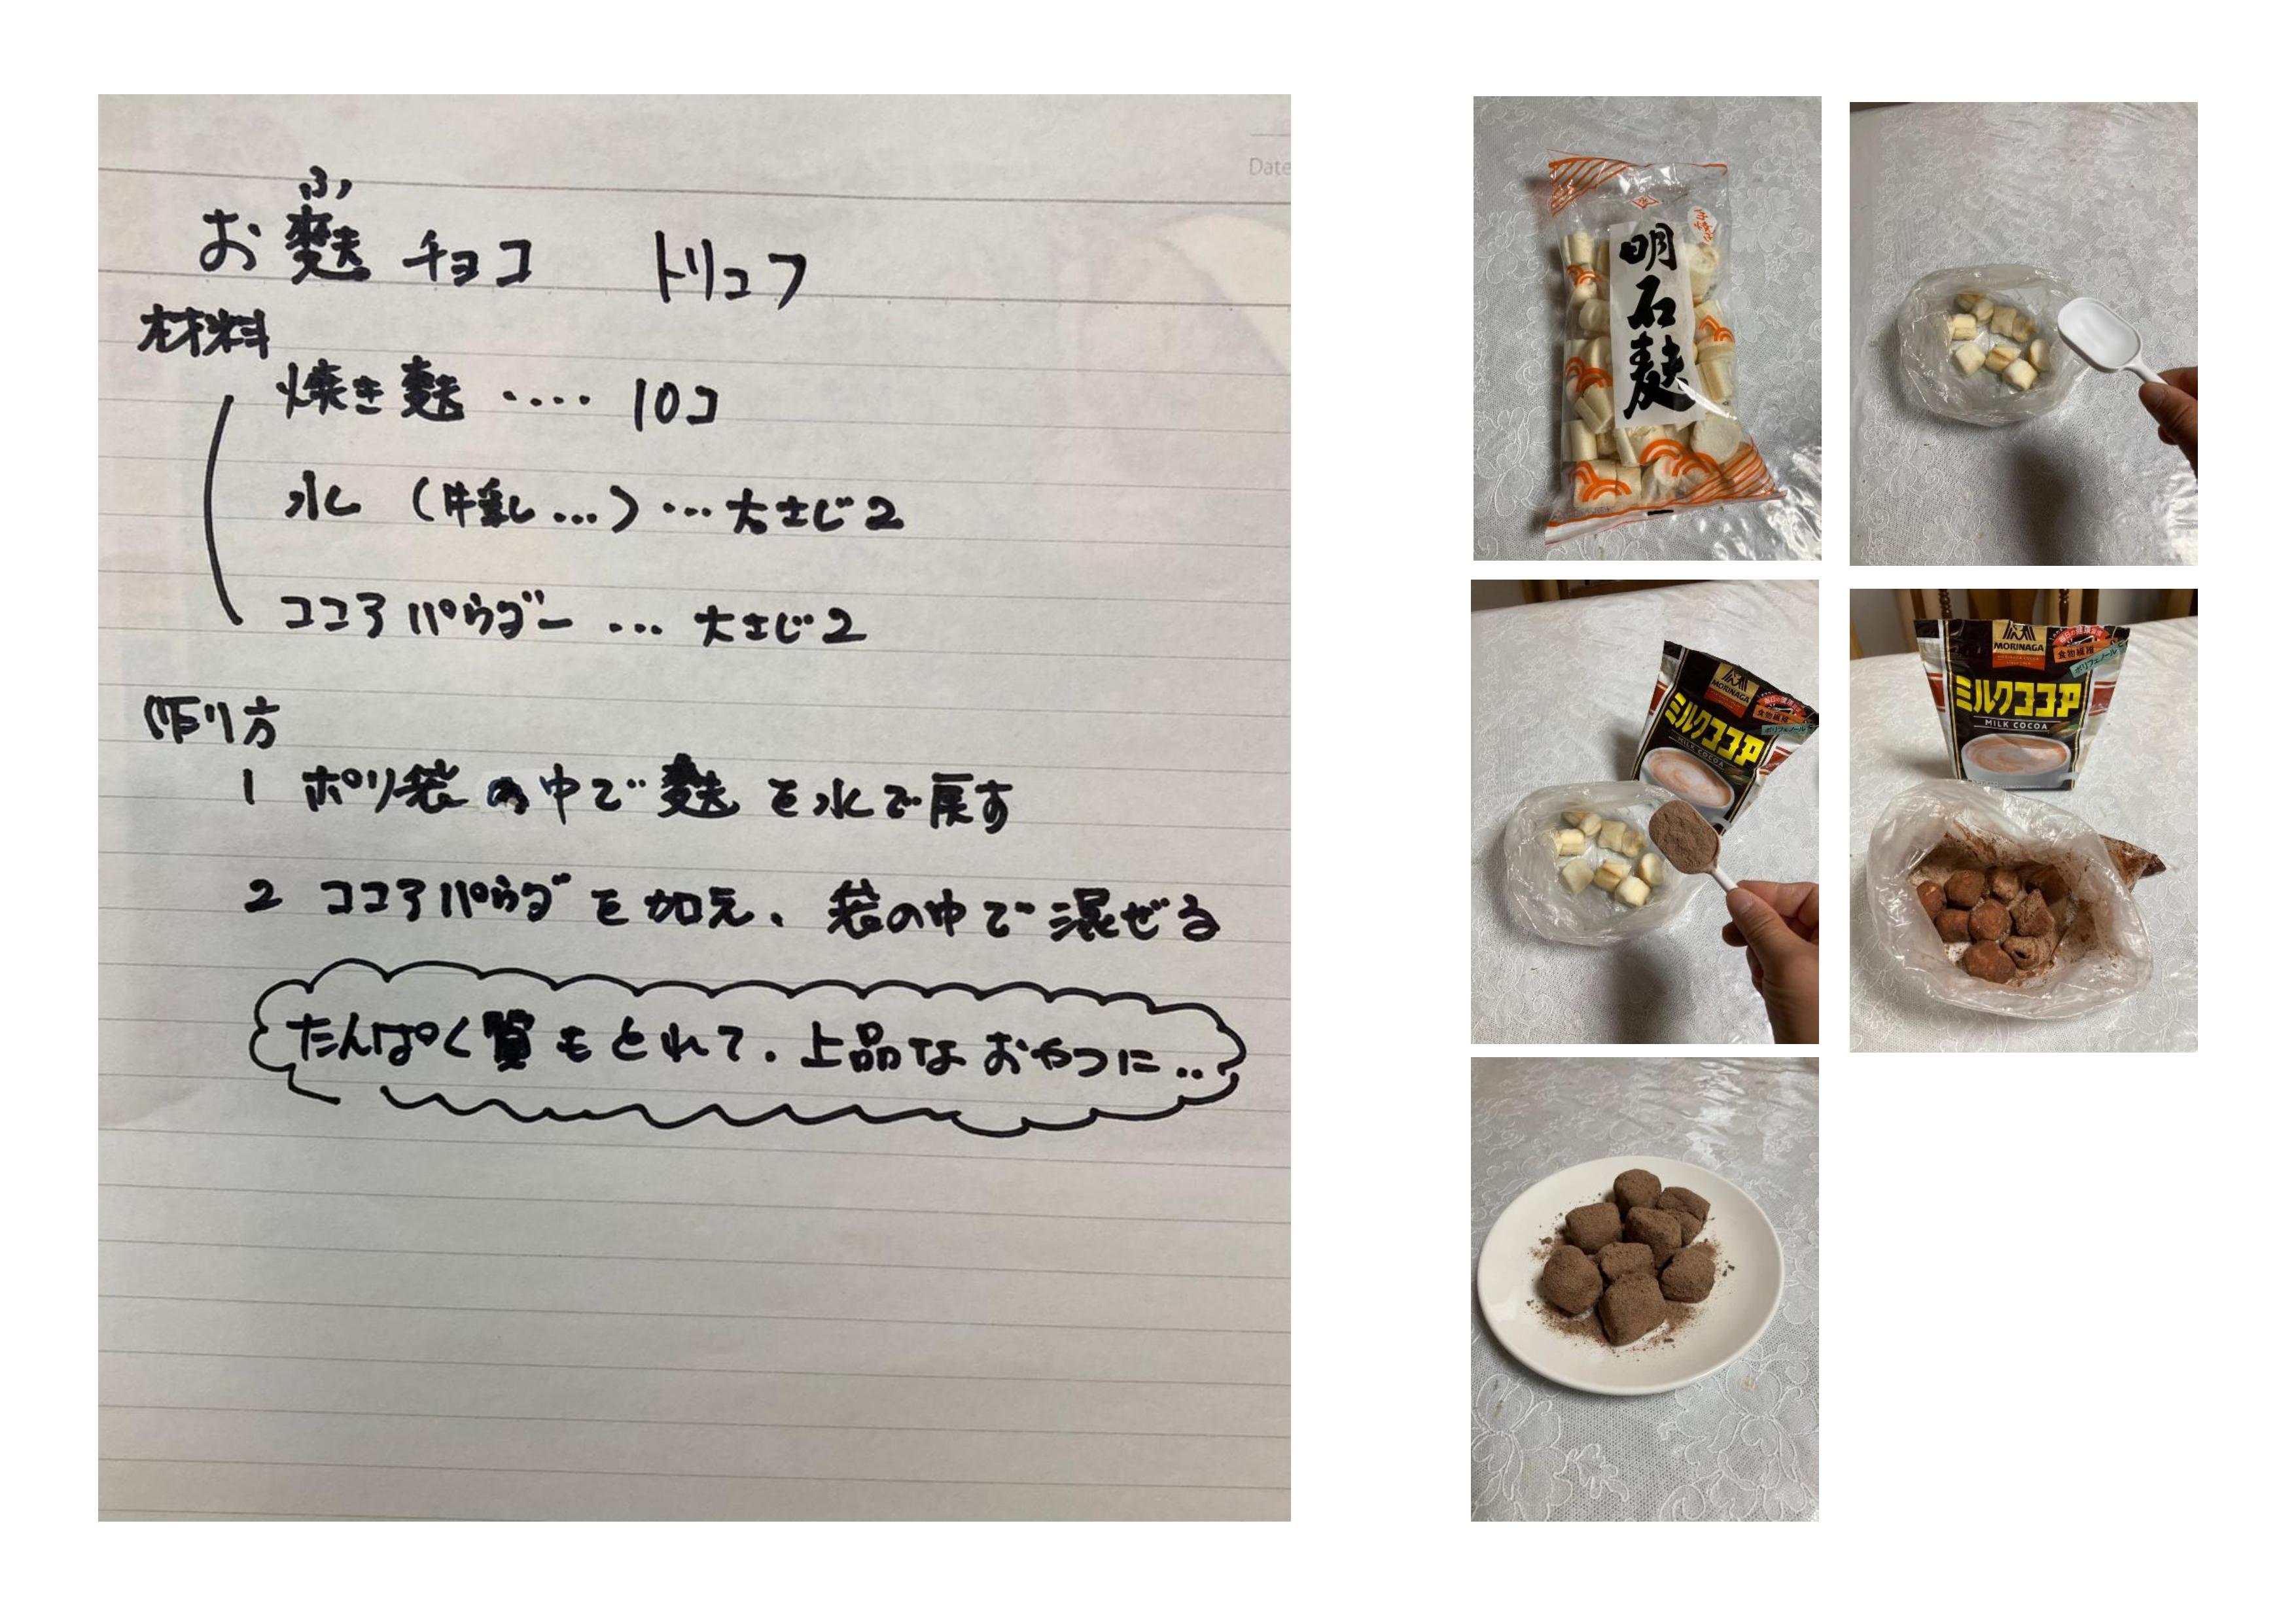 Date
ふ
お麩チョコ トリュフ
材料
焼き麩 ‥‥ 10コ
水 (牛乳…) … 大さじ2
ココアパウダー … 大さじ2
作り方
1 ポリ袋の中で麩を水で戻す
2 ココアパウダを加え、袋の中で混ぜる
たんぱく質もとれて、上品なおやつに‥
手焼
明石麩
MORINAGA
食物繊維
ポリフェノール
ミルクココア
MILK COCOA
MORINAGA
食物繊維
ポリフェノール
ミルクココア
MILK COCOA